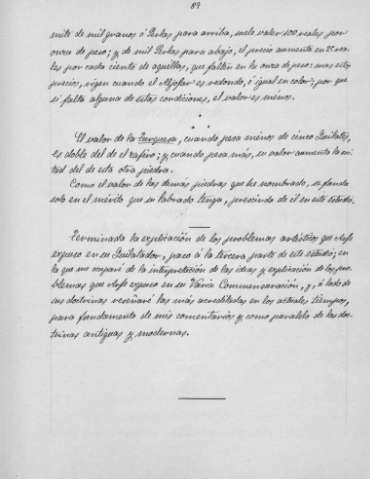 89
mite de mil granos ó Perlas para arriba, suele valer 100 reales por
onza de peso; y de mil Perlas para abajo, el precio aumenta en 25 rea-
les por cada ciento de aquellas, que falten en la onza de peso: mas estos
precios, rigen cuando el Aljofar es redondo, é igual en color; por que
si falta alguna de estas condiciones, el valor es menos.
El valor de la Turquesa, cuando pesa menos de cinco Quilates,
es doble del de el zafiro; y cuando pesa más, su valor aumenta la mi-
tad del de esta otra piedra.
Como el valor de las demás piedras que he nombrado, se funda
solo en el mérito que su labrado tenga, prescindo de él en este estudio.
Terminada la esplicación de los problemas artísticos que Arfe
expuso en su Quilatador, paso á la tercera parte de este estudio; en
la que me ocuparé de la interpretación de las ideas y esplicación de los pro-
blemas que Arfe expuso en su Varia Commensuración, y, á lado de
sus doctrinas reseñaré las más acreditadas en los actuales tiempos,
para fundamento de mis comentarios y como paralelo de las doc-
trinas antiguas y modernas.